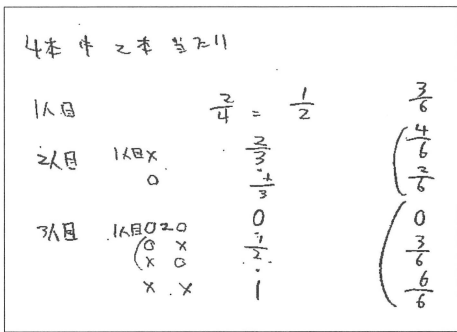 4本中2本当たり
1人目 2/4 = 1/2 3/6
2人目 1人目× 2/3 4/6
○ 1/3 2/6
3人目 1人目○2○ 0 0
○ × 1/2 3/6
× ○
× × 1 6/6